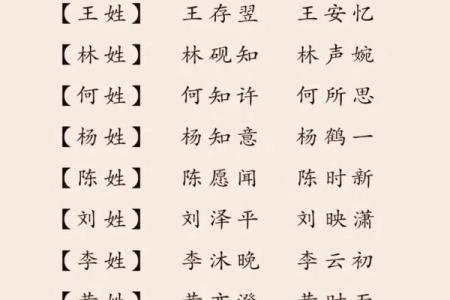 【王姓】 王存翌 王安忆
【林姓】 林砚知 林声婉
【何姓】 何知许 何所思
【杨姓】 杨知意 杨鹤一
【陈姓】 陈愿闻 陈时新
【刘姓】 刘泽平 刘映潇
【李姓】 李沐晚 李云初
【黄姓】 黄亦澄 黄时